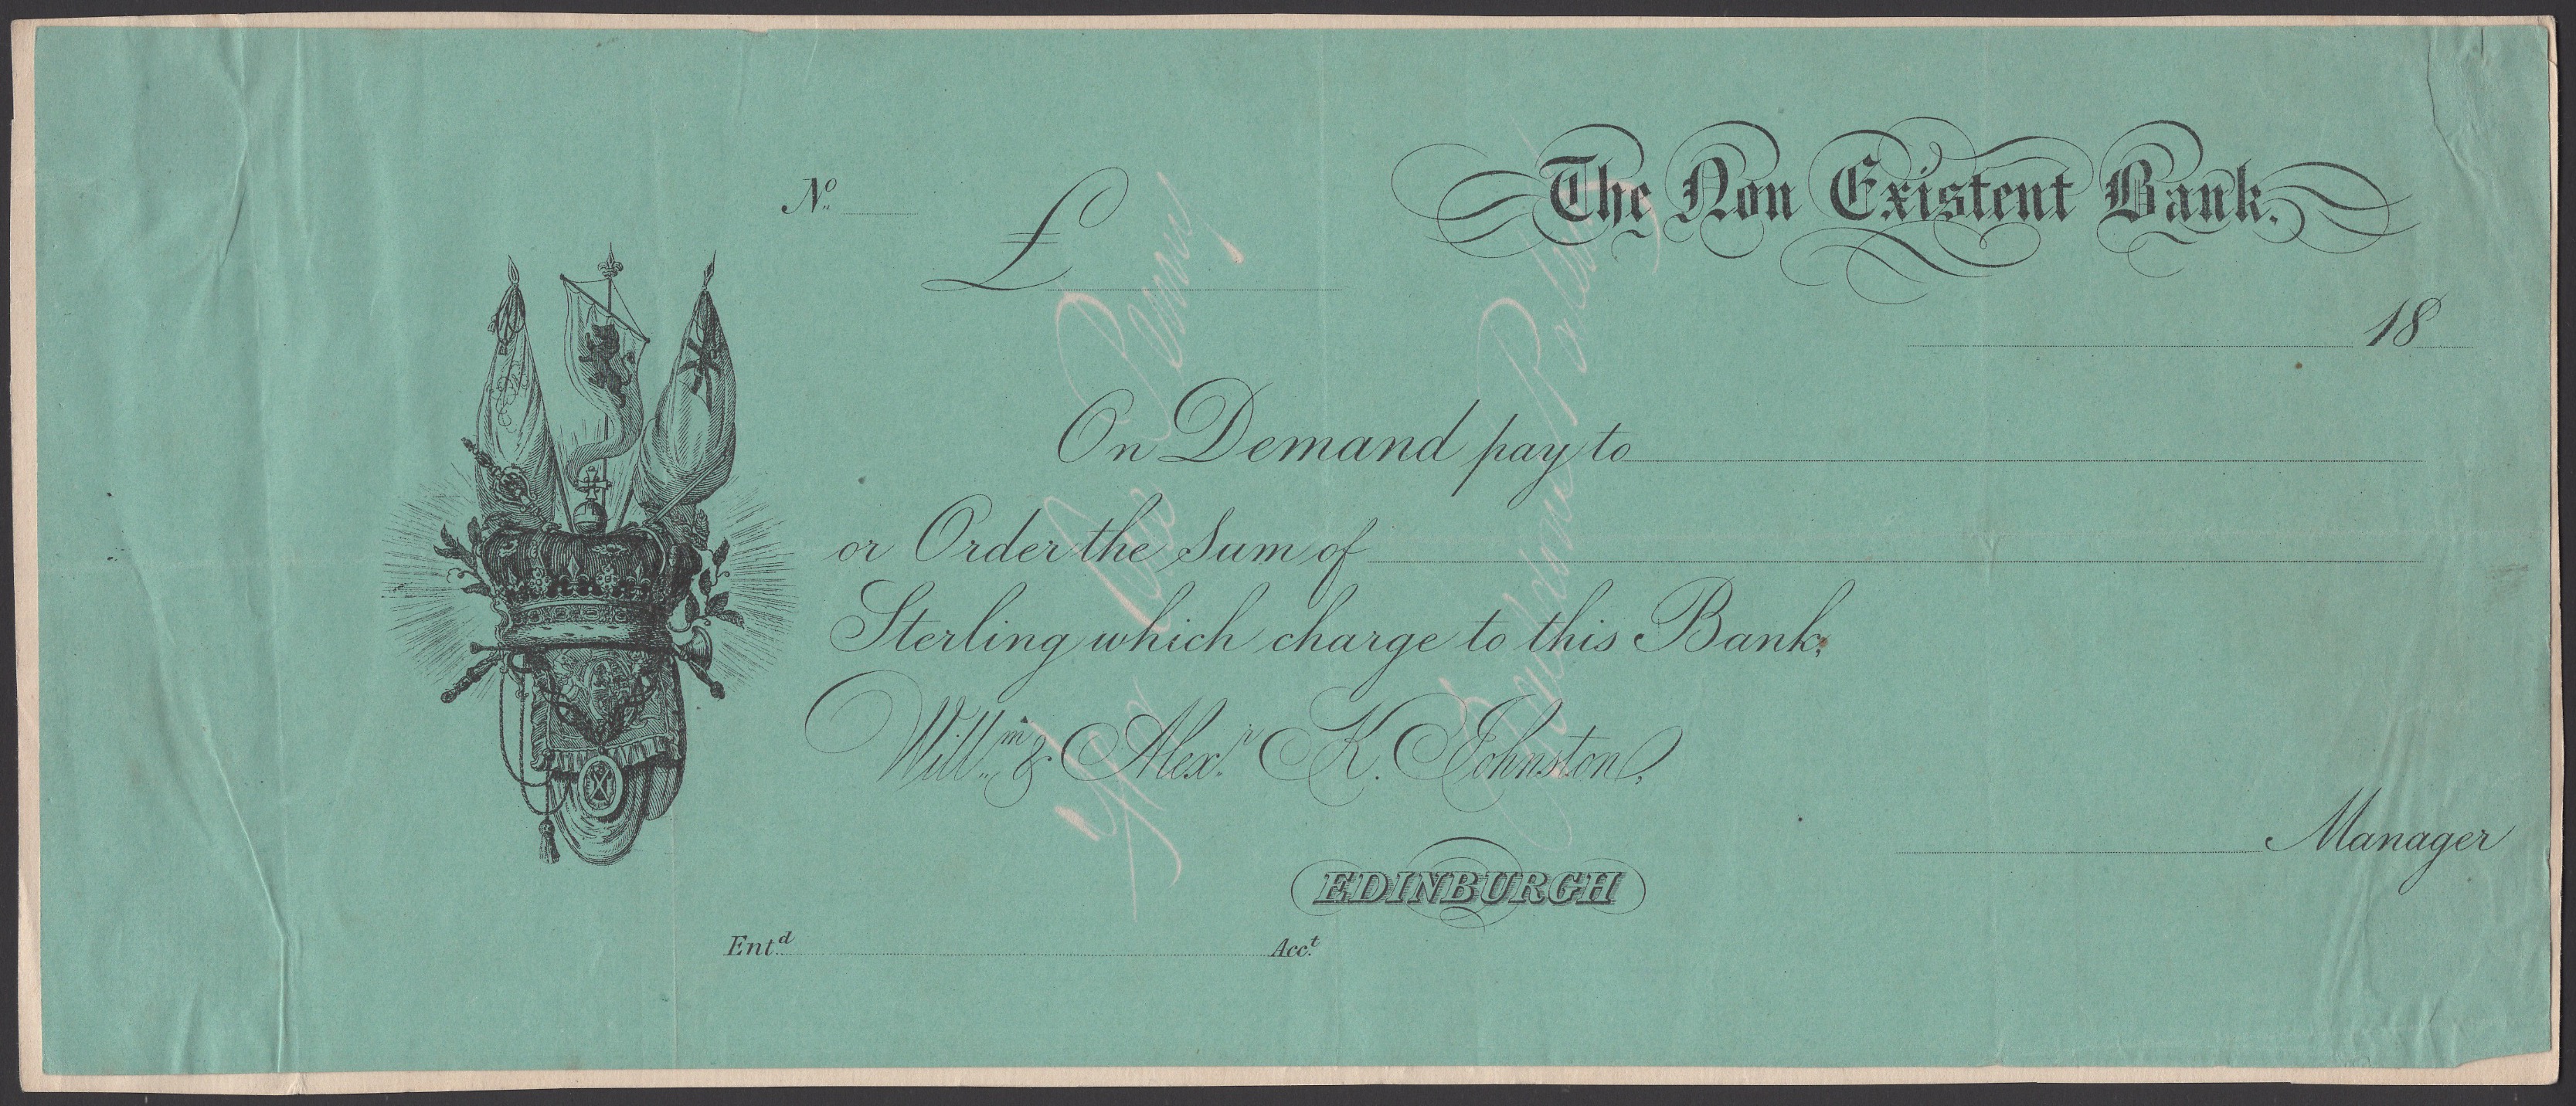 The Non Existent Bank.
No.
£
18
On Demand pay to
or Order the Sum of
Sterling which charge to this Bank,
Willm. & Alexr. K. Johnston,
Manager
EDINBURGH
Entd. Acct.
One Penny